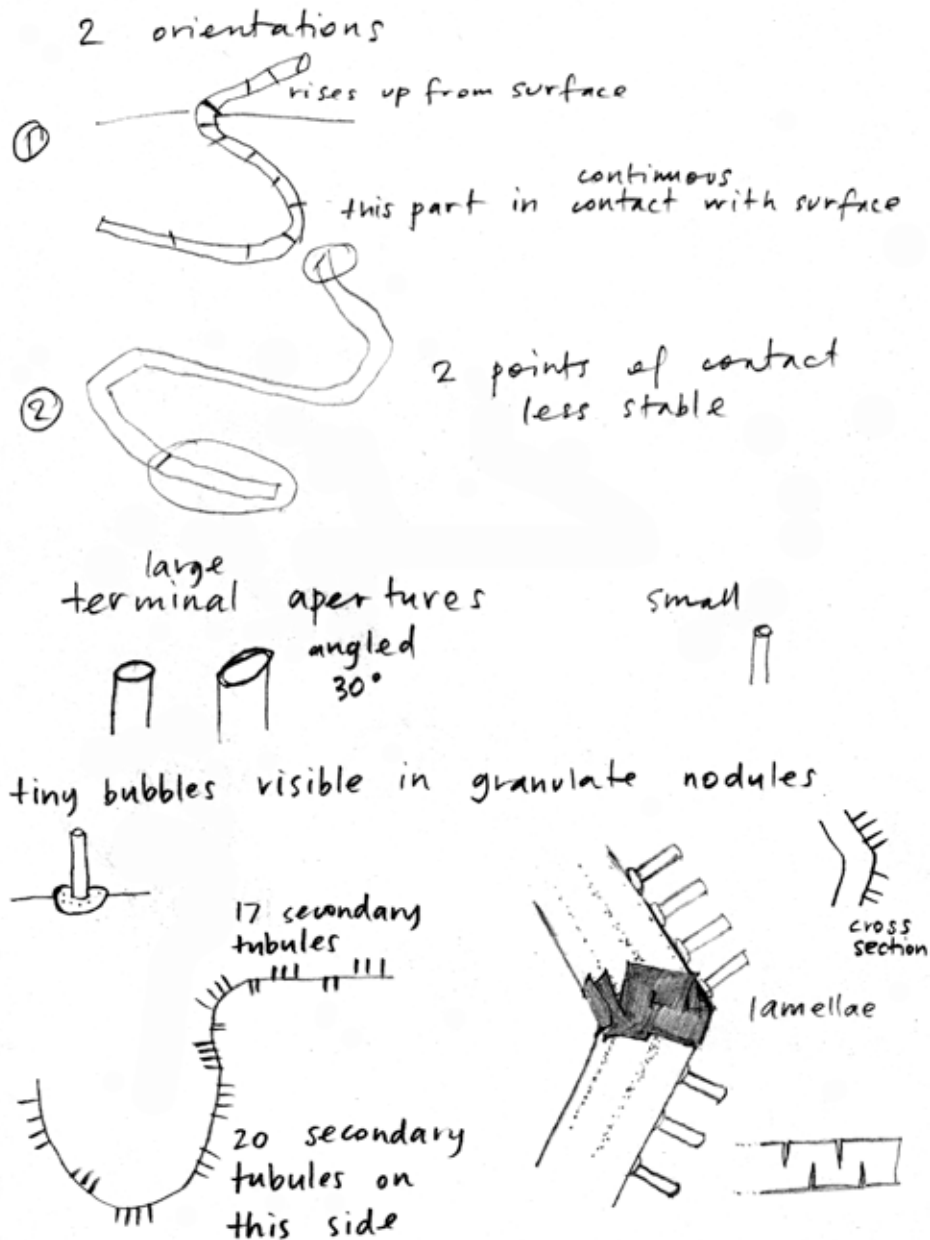 2 orientations
rises up from surface
1
continuous
this part in contact with surface
2 points of contact
less stable
2
large
terminal apertures
angled
30°
small
tiny bubbles visible in granulate nodules
17 secondary
tubules
cross
section
lamellae
20 secondary
tubules on
this side